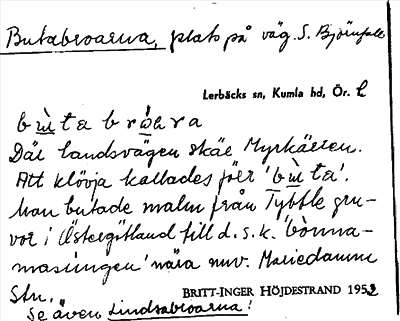 Butabroarna, plats på väg. S. Björnfall
Lerbäcks sn, Kumla hd, Ör. l
bùta bròara
Där landsvägen skär Myrkärren.
Att klövja kallades förr 'bùta'.
Man butade malm från Tybble gru-
vor i Östergötland till d.s.k. 'bònna-
masúngen' nära nuv. Mariedamm
Stn.
BRITT-INGER HÖJDESTRAND 1952
Se även Lindsabroarna!